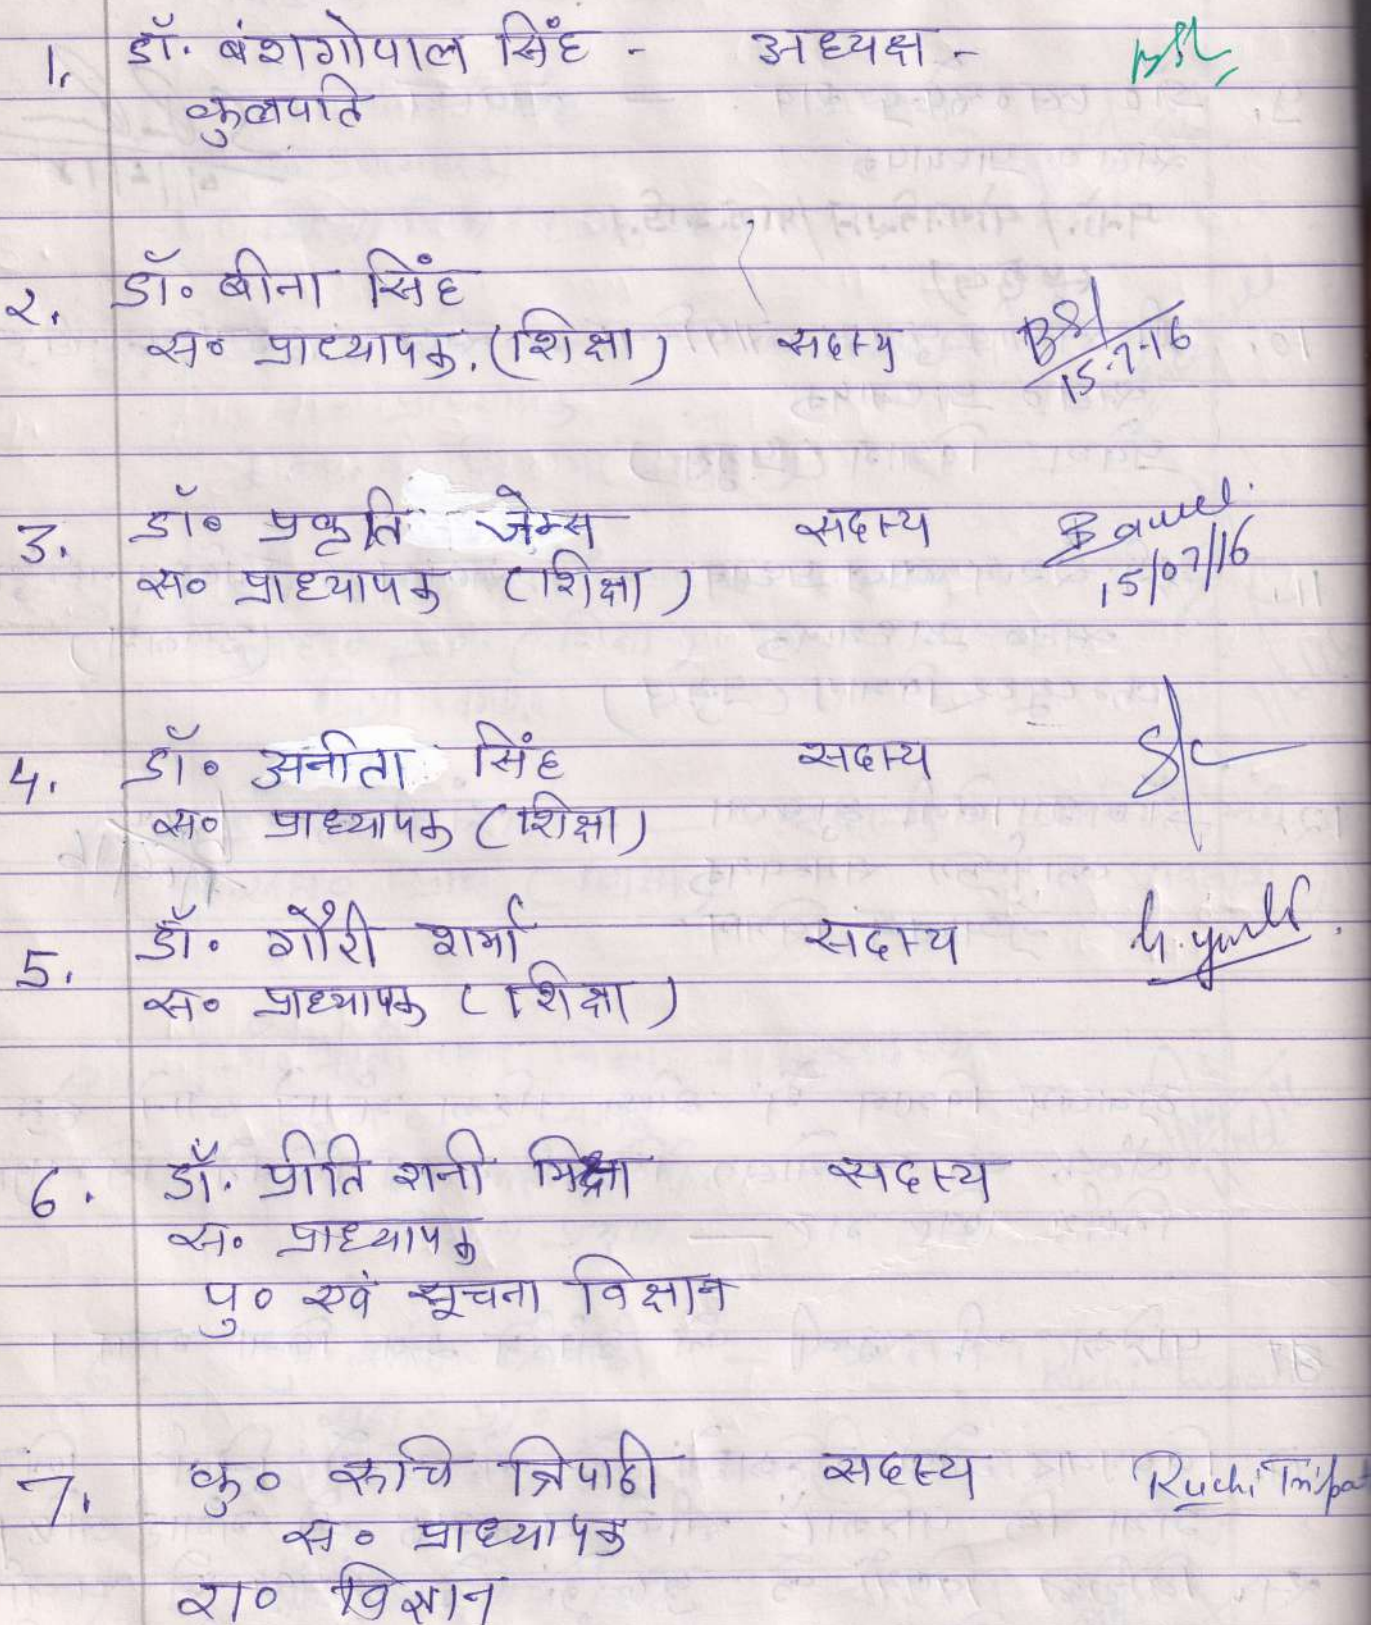 1. डॉ. बंशगोपाल सिंह - अध्यक्ष -
कुलपति
2. डॉ० बीना सिंह
स० प्राध्यापक. (शिक्षा) सदस्य 15.7.16
3. डॉ० प्रकृति जेम्स सदस्य
स० प्राध्यापक (शिक्षा) 15/07/16
4. डॉ० अनीता सिंह सदस्य
स० प्राध्यापक (शिक्षा)
5. डॉ. गौरी शर्मा सदस्य
स० प्राध्यापक (शिक्षा)
6. डॉ. प्रीति रानी मिश्रा सदस्य
स० प्राध्यापक
पु० एवं सूचना विज्ञान
7. कु० रूचि त्रिपाठी सदस्य Ruchi Tripat
स० प्राध्यापक
रा० विज्ञान